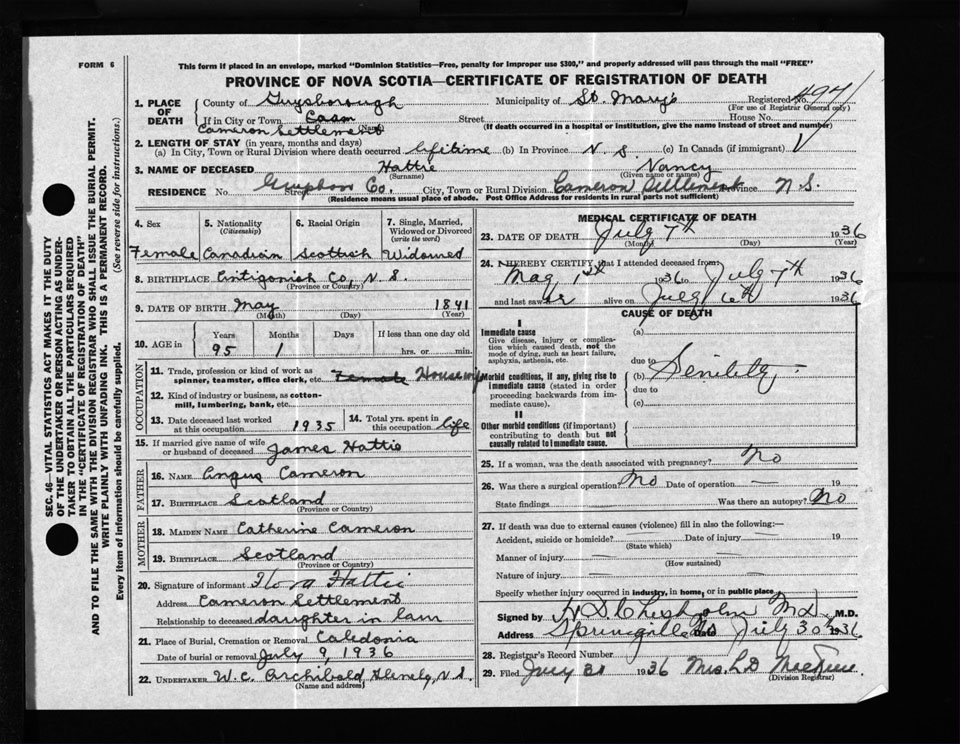 FORM 6
This form if placed in an envelope, marked "Dominion Statistics—Free, penalty for improper use $300," and properly addressed will pass through the mail "FREE"
PROVINCE OF NOVA SCOTIA—CERTIFICATE OF REGISTRATION OF DEATH
1. PLACE OF DEATH County of Guysborough Municipality of St. Mary's Registered No. 497
(For use of Registrar General only)
If in City or Town Street House No.
Cameron Settlement (Name) (If death occurred in a hospital or institution, give the name instead of street and number)
2. LENGTH OF STAY (in years, months and days)
(a) In City, Town or Rural Division where death occurred lifetime (b) In Province N. S. (c) In Canada (if immigrant)
3. NAME OF DECEASED Hattie Nancy
(Surname) (Given name or names)
RESIDENCE No. Street Co. City, Town or Rural Division Cameron Settlement Province N. S.
(Residence means usual place of abode. Post Office Address for residents in rural parts not sufficient)
4. Sex 5. Nationality (Citizenship) 6. Racial Origin 7. Single, Married, Widowed or Divorced (write the word)
Female Canadian Scottish Widowed
8. BIRTHPLACE Antigonish Co, N. S.
(Province or Country)
9. DATE OF BIRTH May 1841
(Month) (Day) (Year)
10. AGE in Years Months Days If less than one day old
95 1 hrs. or min.
OCCUPATION
11. Trade, profession or kind of work as spinner, teamster, office clerk, etc. Female Housewife
12. Kind of industry or business, as cotton-mill, lumbering, bank, etc.
13. Date deceased last worked at this occupation 1935 14. Total yrs. spent in this occupation life
15. If married give name of wife or husband of deceased James Hattie
FATHER
16. NAME Angus Cameron
17. BIRTHPLACE Scotland
(Province or Country)
MOTHER
18. MAIDEN NAME Catherine Cameron
19. BIRTHPLACE Scotland
(Province or Country)
20. Signature of informant Flora Hattie
Address Cameron Settlement
Relationship to deceased daughter in law
21. Place of Burial, Cremation or Removal Caledonia
Date of burial or removal July 9, 1936
22. UNDERTAKER W. C. Archibald, Glenelg, N. S.
(Name and address)
MEDICAL CERTIFICATE OF DEATH
23. DATE OF DEATH July 7th 1936
(Month) (Day) (Year)
24. I HEREBY CERTIFY that I attended deceased from
May 1st 1936 to July 7th 1936
and last saw her alive on July 6th 1936
CAUSE OF DEATH
I
Immediate cause (a)
Give disease, injury or complication which caused death, not the mode of dying, such as heart failure, asphyxia, asthenia, etc.
due to
Morbid conditions, if any, giving rise to immediate cause (stated in order proceeding backwards from immediate cause). (b) Senility
due to
(c)
II
Other morbid conditions (if important) contributing to death but not causally related to immediate cause.
25. If a woman, was the death associated with pregnancy? No
26. Was there a surgical operation? No Date of operation — 19
State findings Was there an autopsy? No
27. If death was due to external causes (violence) fill in also the following:—
Accident, suicide or homicide? Date of injury — 19
(State which)
Manner of injury —
(How sustained)
Nature of injury —
Specify whether injury occurred in industry, in home, or in public place
Signed by Chisholm M.D. M.D.
Address Date July 30th 1936
28. Registrar's Record Number
29. Filed July 31 1936 Mrs.
(Division Registrar)
SEC. 46—VITAL STATISTICS ACT MAKES IT THE DUTY
OF THE UNDERTAKER OR PERSON ACTING AS UNDER-
TAKER TO OBTAIN ALL THE PARTICULARS REQUIRED
IN THE "CERTIFICATE OF REGISTRATION OF DEATH"
AND TO FILE THE SAME WITH THE DIVISION REGISTRAR WHO SHALL ISSUE THE BURIAL PERMIT.
WRITE PLAINLY WITH UNFADING INK. THIS IS A PERMANENT RECORD.
Every item of information should be carefully supplied. (See reverse side for instructions.)